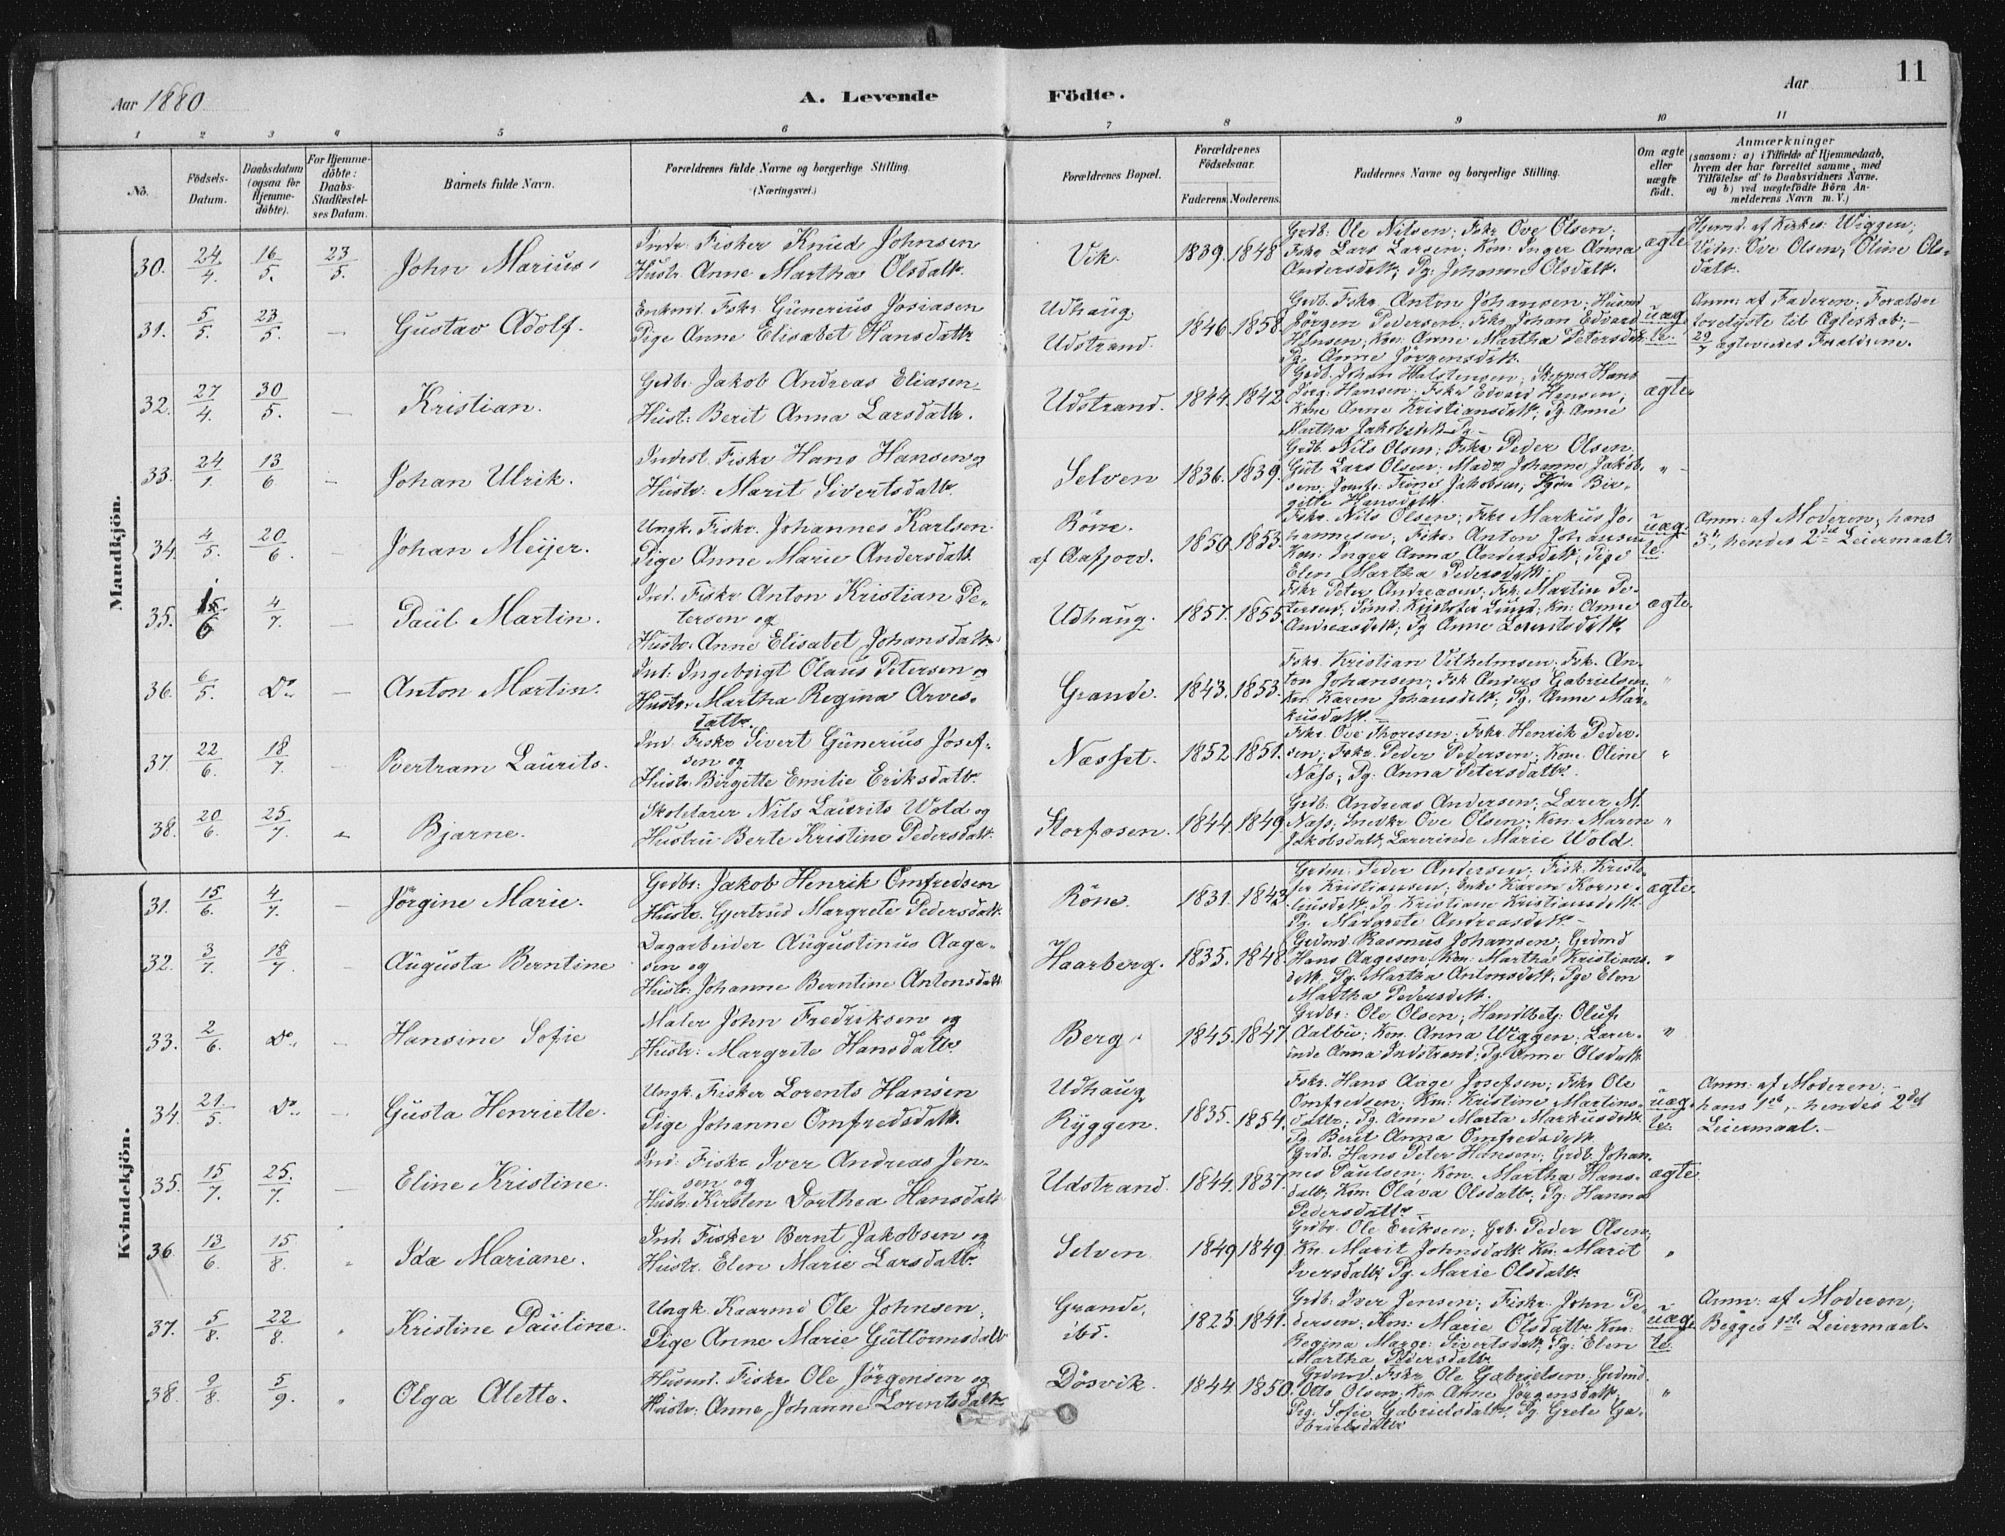 Aar 1880
A. Levende Födte.
Aar
11
1 2 3 4 5 6 7 8 9 10 11
Nö.
Födsels-Datum.
Daabsdatum (ogsaa for Hjemmedöbte).
For Hjemmedöbte: Daabs-Stadfæstelses Datum.
Barnets fulde Navn.
Forældrenes fulde Navne og borgerlige Stilling. (Næringsvei.)
Forældrenes Bopæl.
Forældrenes Födselsaar.
Faderens. Moderens.
Faddernes Navne og borgerlige Stilling.
Om ægte eller uægte födt.
Anmærkninger
(saasom: a) i Tilfælde af Hjemmedaab, hvem der har forrettet samme, med Tilföielse af to Daabsvidners Navne, og b) ved uægtefödte Börn Anmelderens Navn m. V.)
Mandkjön.
30. 24/4. 16/5. 23/5. John Marius.
Indr. Fisker Knud Johnsen
Hustr. Anne Martha Olsdatr.
Vik. 1839. 1848
Grdb: Ole Nilsen; Fskr Ove Olsen;
Fskr Lars Larsen; Kon: Inger Anna
Andersdatr, Pg: Johanne Olsdatr.
ægte
Hjemd. af Kirkes: Wiggen;
Vidn: Ove Olsen, Oline Ols-
datr.
31. 5/5. 23/5. — Gustav Adolf.
Enkmd. Fskr. Gunerius Josiasen
Pige Anne Elisabet Hansdatr
Udhaug.
Udstrand.
1846. 1858.
Grdb. Fskr. Anton Johansen; Husmd
Jörgen Pedersen; Fskr Johan Edvard
Hansen; Kon: Anne Martha Petersdatr
Pg. Anne Jörgensdatr.
uæg-
te.
Anm: af Faderen. Forældre
forelyste til Ægteskab;
29/7 ægteviedes Forældrene.
32. 27/4. 30/5. — Kristian.
Grdbr. Jakob Andreas Eliasen
Hust: Berit Anna Larsdatr.
Udstrand. 1844. 1842
Grdb. Johan Halstensen; Skipper Hans
Jörg. Hansen; Fskr Edvard Hansen;
Kone Anne Kristiansdatr; Pg. Anne
Martha Jakobsdatr Pg —
ægte.
33. 24/1 13/6 — Johan Ulrik.
Inderst. Fiskr Hans Hansen og
Hustr: Marit Sivertsdatr.
Selven 1836. 1839.
Grdb. Nils Olsen; Fskr Peder Olsen;
Gut Lars Olsen; Madm Johanne Jakob-
sen; Jomfr. Trine Jakobsen; Pigen Bir-
gitte Hansdatr.
"
34. 4/5. 20/6. — Johan Meijer.
Ungk. Fiskr. Johannes Karlsen.
Pige Anne Marie Andersdatr
Röne.
af Aafjord.
1850. 1853.
Fskr. Nils Olsen; Fskr Markus Jo-
hannesen; Fskr: Anton Johansen
Kon: Inger Anna Andersdatr; Pige
Elen Martha Pedersdatr.
uæg-
te.
Anm: af Moderen; hans
3die, hendes 2det Leiermaal.
35. 4/7. — Paul Martin.
Ind. Fiskr Anton Kristian Pe-
tersen og
Hustr. Anne Elisabet Johansdatr.
Udhaug. 1857. 1855.
Fskr Peter Andreasen; Fsk: Martin Pe-
tersen; Sömd. Kristofer Lund; Kn: Anne
Andreasdatr; Pg Anne Lorentsdatr.
ægte.
36. 6/5. Do. — Anton Martin.
Int: Ingebrigt Olaus Petersen og
Hustr. Martha Regina Arves-
datr.
Grande. 1843. 1853.
Fskr. Kristian Vilhelmsen; Fsk. An-
ton Johansen; Fsk Anders Gabrielsen;
Kon. Karen Johansdatr; Pg. Anne Mar-
kusdatr. —
"
37. 22/6. 18/7. — Bertram Laurits.
Ind. Fiskr Sivert Gunerius Josef-
sen og
Hustr. Birgitte Emilie Eriksdatr.
Næsset. 1852. 1851.
Fskr. Ove Thoresen; Fskr. Henrik Peder-
sen; Fskr. Peder Pedersen; Kon: Oline
Næss; Pg. Anna Petersdatr.
"
38. 20/6. 25/7. Bjarne.
Skolelærer Nils Laurits Wold og
Hustru Berte Kristine Pedersdatr.
Storfosen. 1844. 1849
Grdb: Andreas Andersen; Lærer M.
Næss; Snedkr Ove Olsen; Kon: Maren
Jakobsdatr, Lærerinde Marie Wold.
"
Kvindekjön.
31. 15/6. 4/7. — Jörgine Marie.
Grdbr: Jakob Henrik Omfredsen
Hustr. Gjertrud Margrete Pedersdatr.
Röne. 1831. 1843
Grdm: Peder Andersen; Fisk: Kristo-
fer Kristiansen; Enke Karen Korne-
liusdatr. Pg Kristiane Kristiansdatr.
Pg. Margrete Andreasdatr. —
ægte.
32. 3/7. 18/7. — Augusta Berntine
Dagarbeider Augustinus Aage-
sen og
Hustr: Johanne Berntine Antonsdatr
Haarberg. 1835. 1848.
Grdmd Rasmus Johansen; Grdmd
Hans Aagesen; Kon: Martha Kristians-
datr. Pg. Martha Antonsdatr. Pge Elen
Martha Pedersdatr.
"
33. 2/6. Do. Hansine Sofie
Maler John Fredriksen og
Hustr: Margrete Hansdatr.
Berg. 1845. 1847.
Grdbr: Ole Olsen; Handlbetj. Oluf
Aalbu; Kon. Anna Wiggen; Lærer-
inde Anna Indstrand; Pg. Anne Olsdatr.
"
34. 21/5. Do. Gusta Henriette.
Ungk. Fisker Lorents Hansen
Pige Johanne Omfredsdatr.
Udhaug
Ryggen.
1835. 1854.
Fskr. Hans Aage Josefsen; Fskr Ole
Omfredsen; Kon: Kristine Martins-
datr; Pg. Anne Marta Markusdatr.
Pg Berit Anna Omfredsdatr
uæg-
te.
Anm: af Moderen;
hans 1ste, hendes 2det
Leiermaal. —
35. 15/7. 25/7. — Eline Kristine.
Ind. Fiskr Iver Andreas Jen-
sen og
Hustr. Kirsten Dorthea Hansdatr
Udstrand. 1844. 1837.
Grdb. Hans Peter Hansen; Grdb. Johan-
nes Paulsen; Kon. Martha Hans-
datr; Kon: Olava Olsdatr. Pg: Hanna
Pedersdatr. —
ægte
36. 13/6. 15/8. " Ida Mariane.
Ind. Fisker Bernt Jakobsen og
Hustr. Elen Marie Larsdatr.
Selven. 1849 1849.
Grdbr. Ole Eriksen; Grb. Peder Olsen;
Kn. Marit Johnsdatr. Kn: Marit
Iversdatr; Pg. Marie Olsdatr.
"
37. 5/8. 22/8. " Kristine Pauline.
Ungk. Kaarmd Ole Johnsen;
Pige Anne Marie Guttormsdatr
Grande,
ibd.
1825. 1841.
Grdb: Iver Jensen; Fiskr. John Pe-
dersen; Kon: Marie Olsdatr. Kon:
Regina Margr: Sivertsdatr, Pg: Elen
Martha Pedersdatr
uæg-
te.
Anm: af Moderen;
Begges 1ste Leiermaal.
38. 9/8. 5/9. " Olga Alette.
Husmd. Fiskr Ole Jörgensen og
Hustr: Anne Johanne Lorentsdatr.
Dösvik. 1844 1850.
Grdmd. Fskr. Ole Gabrielsen; Grdmd.
Otto Olsen; Kon: Anne Jörgensdatr;
Pg. Sofie Gabrielsdatr, Pg. Grete Ga-
brielsdatr
"